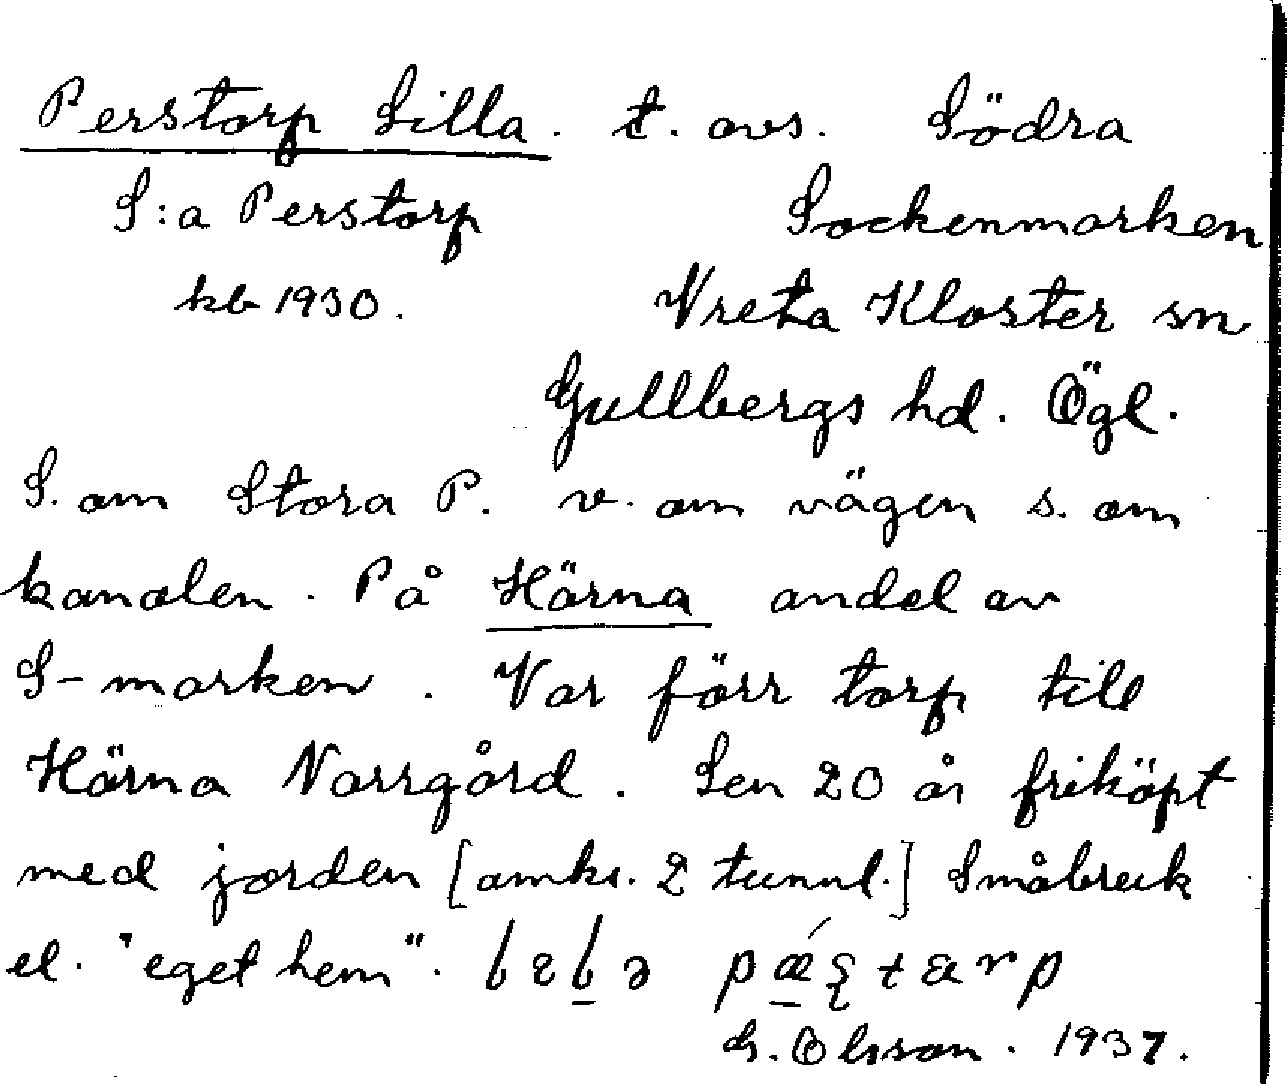 Perstorp Lilla. t. avs. Södra
S:a Perstorp Sockenmarken
kb 1930. Vreta Kloster sn
Gullbergs hd. Ögl.
S. om Stora P. v. om vägen s. om
kanalen. På Härna andel av
S-marken. Var förr torp till
Härna Norrgård. Sen 20 år friköpt
med jorden [omkr. 2 tunnl.] Småbruk
el. "eget hem".
G. Olsson. 1937.